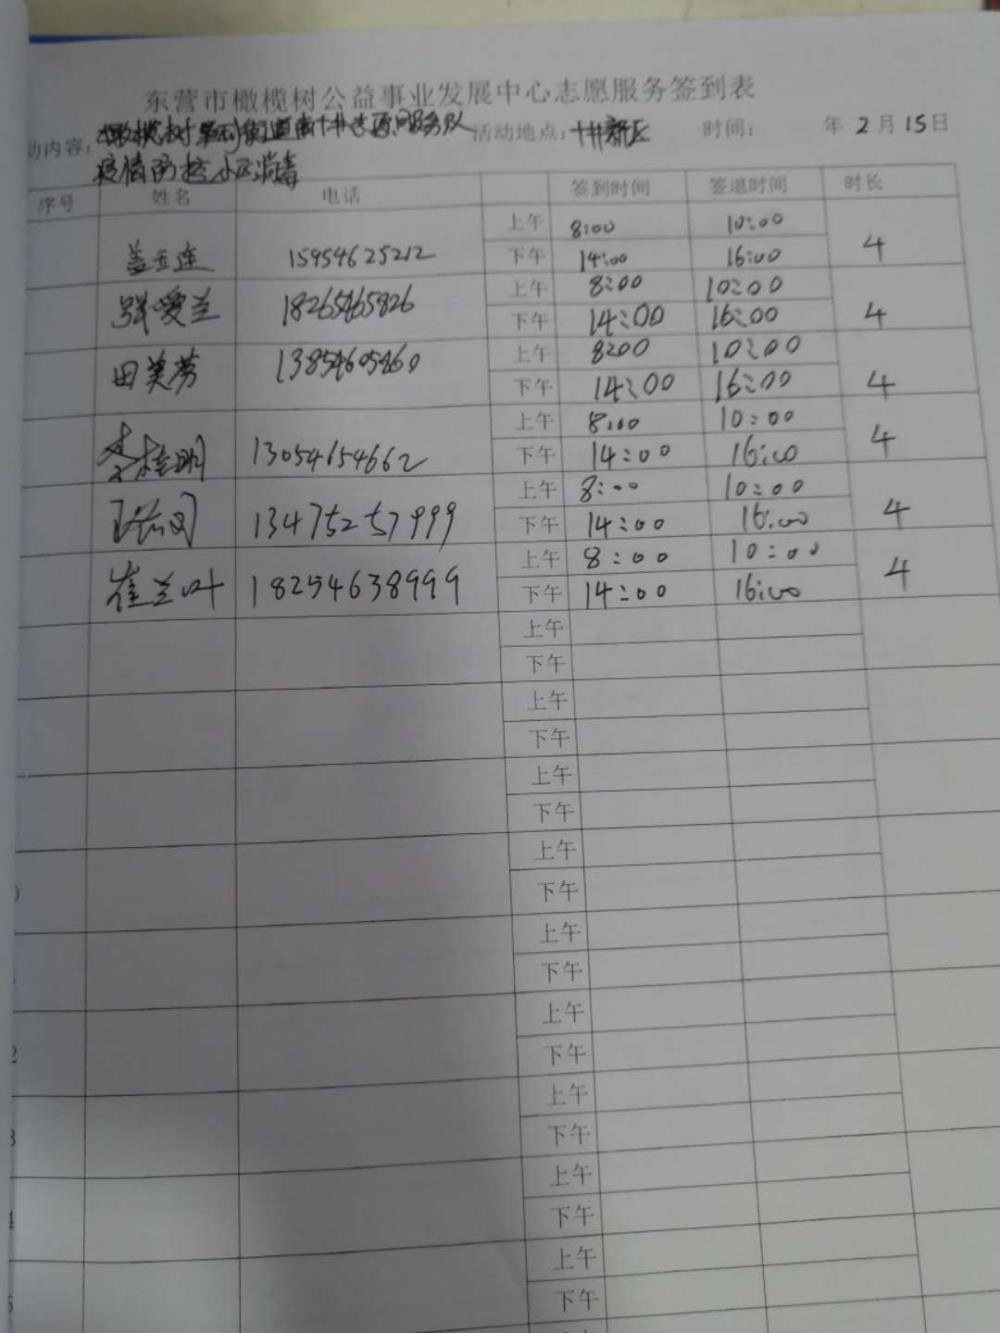 东营市橄榄树公益事业发展中心志愿服务签到表
动内容: 橄榄树 街道 十井志愿服务队 活动地点: 十井新区 时间: 年 2 月 15 日
疫情防控小区消毒
序号 姓名 电话 签到时间 签退时间 时长
上午 8:00 10:00
盖玉莲 15954625212 下午 14:00 16:00 4
上午 8:00 10:00
张爱兰 18265465826 下午 14:00 16:00 4
上午 8:00 10:00
田美芳 13854605460 下午 14:00 16:00 4
上午 8:00 10:00
李桂明 13054654662 下午 14:00 16:00 4
上午 8:00 10:00
13475257999 下午 14:00 16:00 4
上午 8:00 10:00
崔兰叶 18254638999 下午 14:00 16:00 4
上午
下午
上午
下午
上午
下午
上午
下午
上午
下午
上午
下午
上午
下午
上午
下午
上午
下午